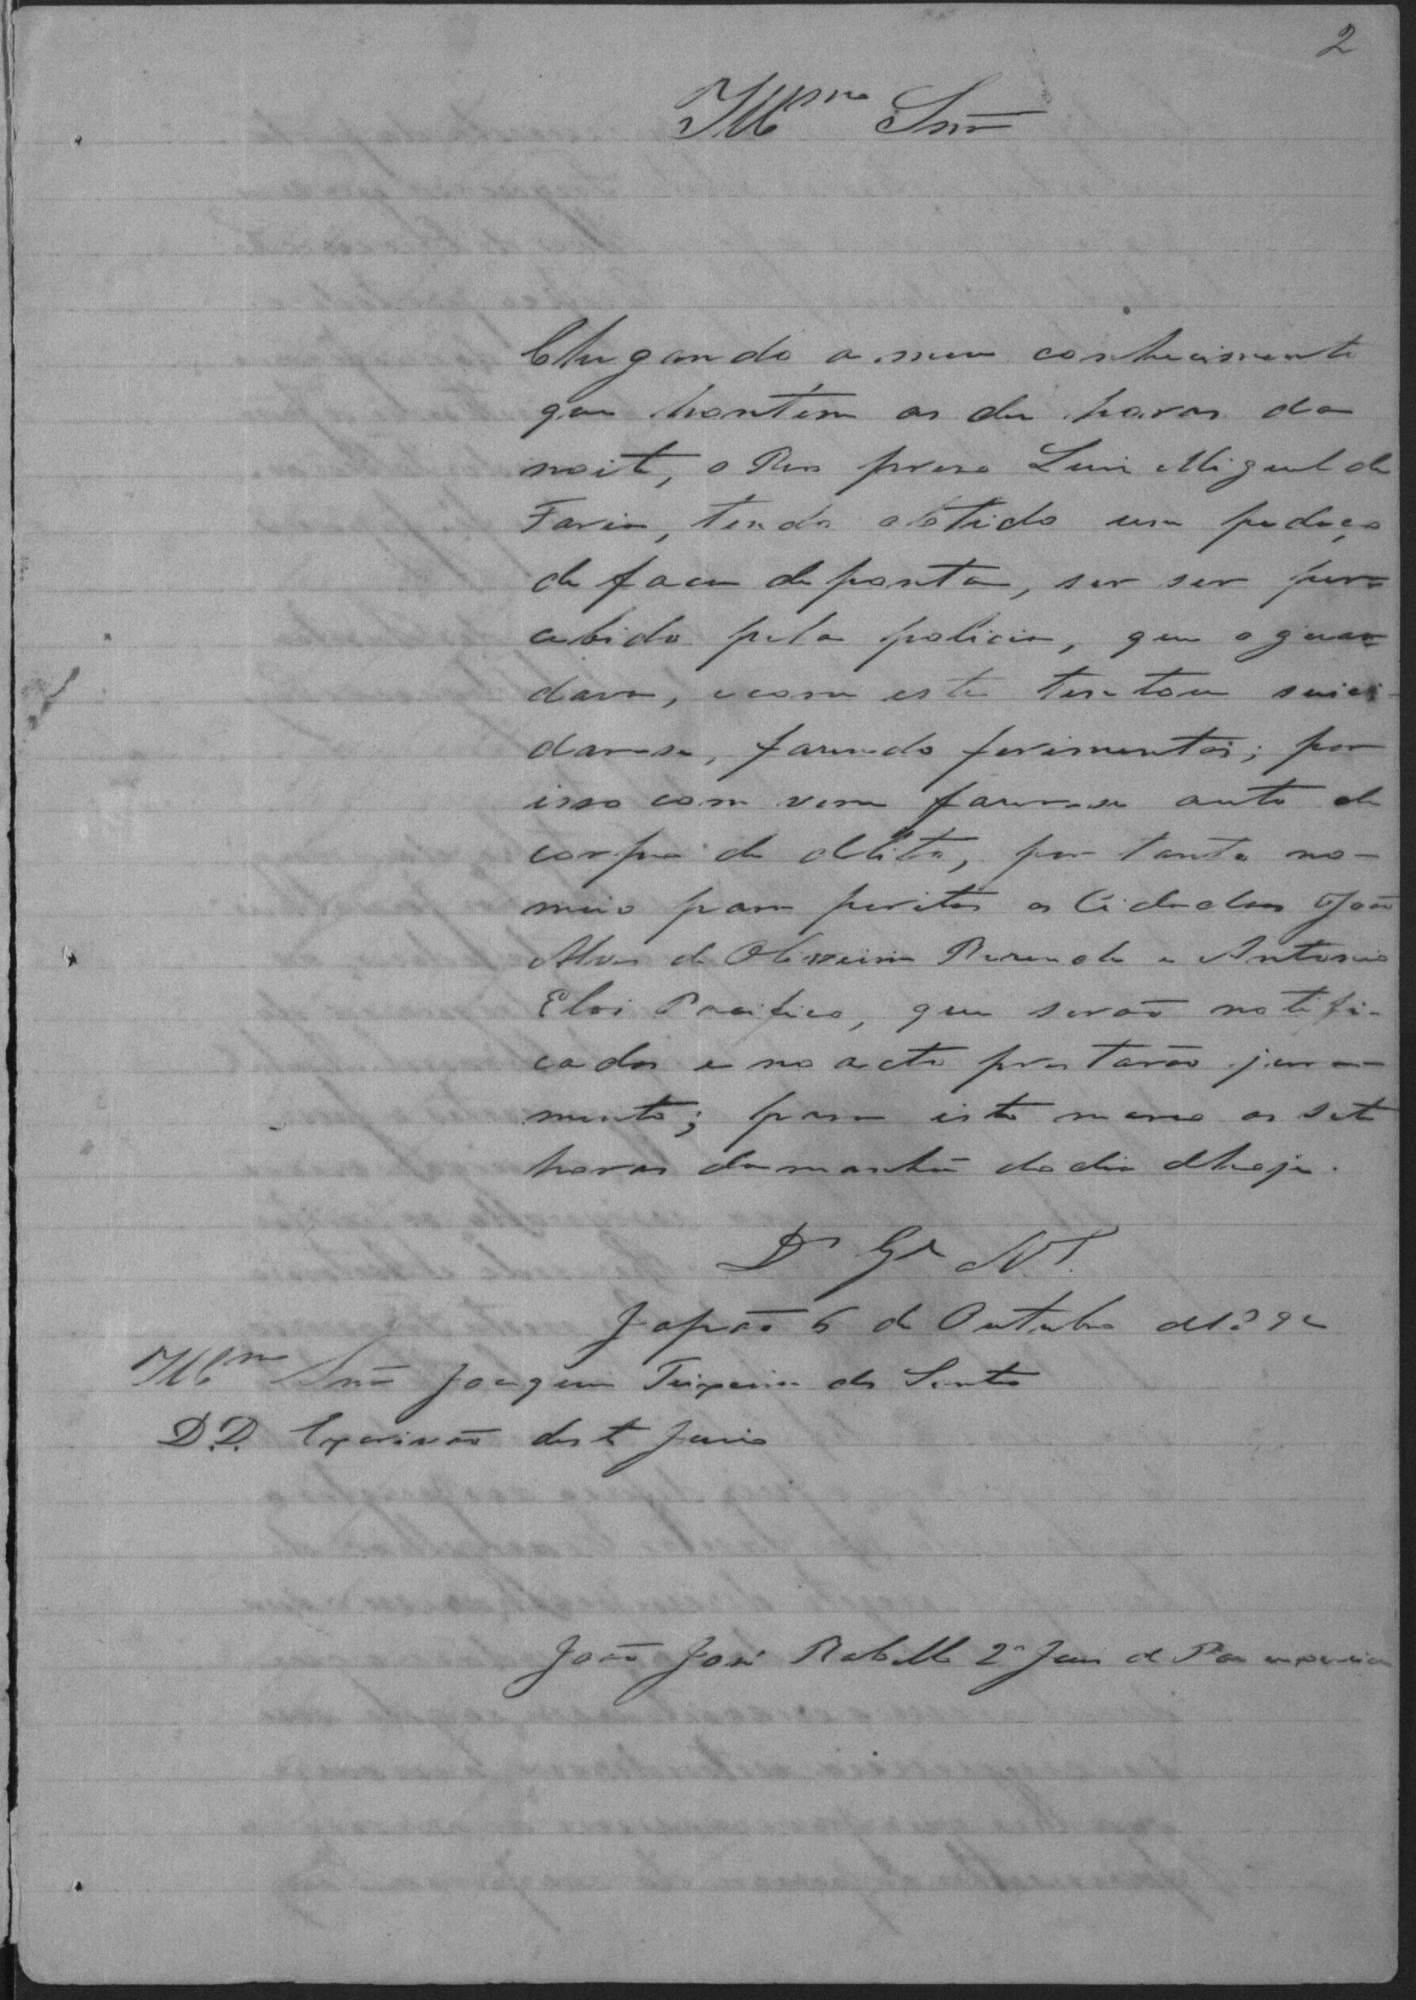 2
Illmo Snr
Chegando a meu conhecimento
que hontem as des horas da
noite, o Reo preso Luis Miguel de
Faria, tendo obtido um pedaço
de faca de ponta, ser ser per=
cebido pela policia, que o guar=
dava, e com este tentou suici-
darse, fazendo ferimentos; por
isso com vem fazer-se auto de
corpo de delito, por tanto no-
meio para peritos os Cidadãos João
Alves de Oliveira Rezende e Antonio
Eloi Pacifico, que serão notifi-
cados e no acto prestarão jura-
mento; para isto marco as sete
horas da manhã do dia de hoje.
Ds Ge N.
Japão 6 de Outubro de 1892
Illmo Snr Joaquim Teixeira dos Santos
D.D. Escrivão deste Juizo
João José Rabello 2º Juis de Paz em exercicio